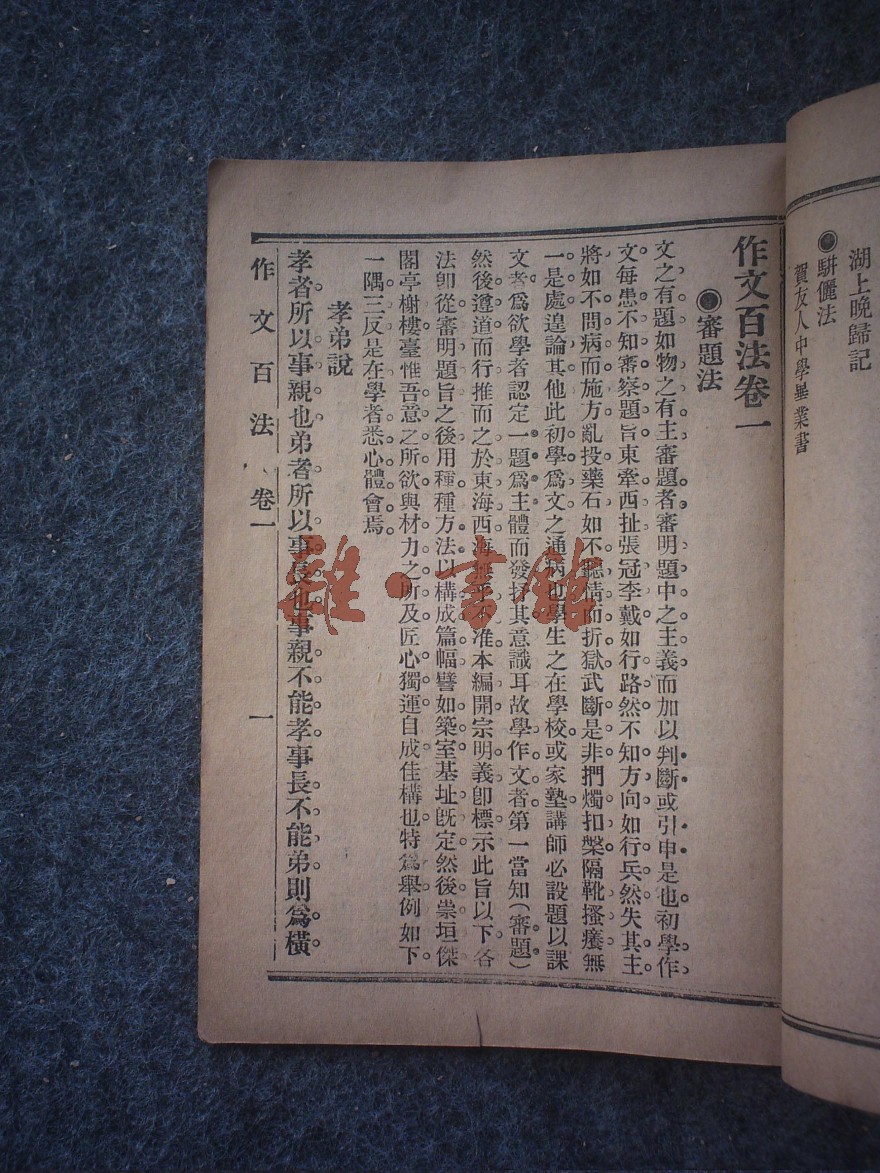 湖上晚歸記
◉駢儷法
賀友人中學畢業書
作文百法卷一
◉審題法
文之有題如物之有主審題者審明題中之主義而加以判斷或引申是也初學作
文每患不知審察題旨東牽西扯張冠李戴如行路然不知方向如行兵然失其主
將如不問病而施方亂投藥石如不聽情而折獄武斷是非捫燭扣槃隔靴搔癢無
一是處遑論其他此初學爲文之通病也學生之在學校或家塾講師必設題以課
文者爲欲學者認定一題爲主體而發抒其意識耳故學作文者第一當知(審題)
然後遵道而行推而之於東海西海無乎不准本編開宗明義卽標示此旨以下各
法卽從審明題旨之後用種種方法以構成篇幅譬如築室基址旣定然後崇垣傑
閣亭榭樓臺惟吾意之所欲與材力之所及匠心獨運自成佳構也特爲舉例如下
一隅三反是在學者悉心體會焉
孝弟說
孝者所以事親也弟者所以事長也事親不能孝事長不能弟則爲橫
作文百法 卷一 一
雜·書館